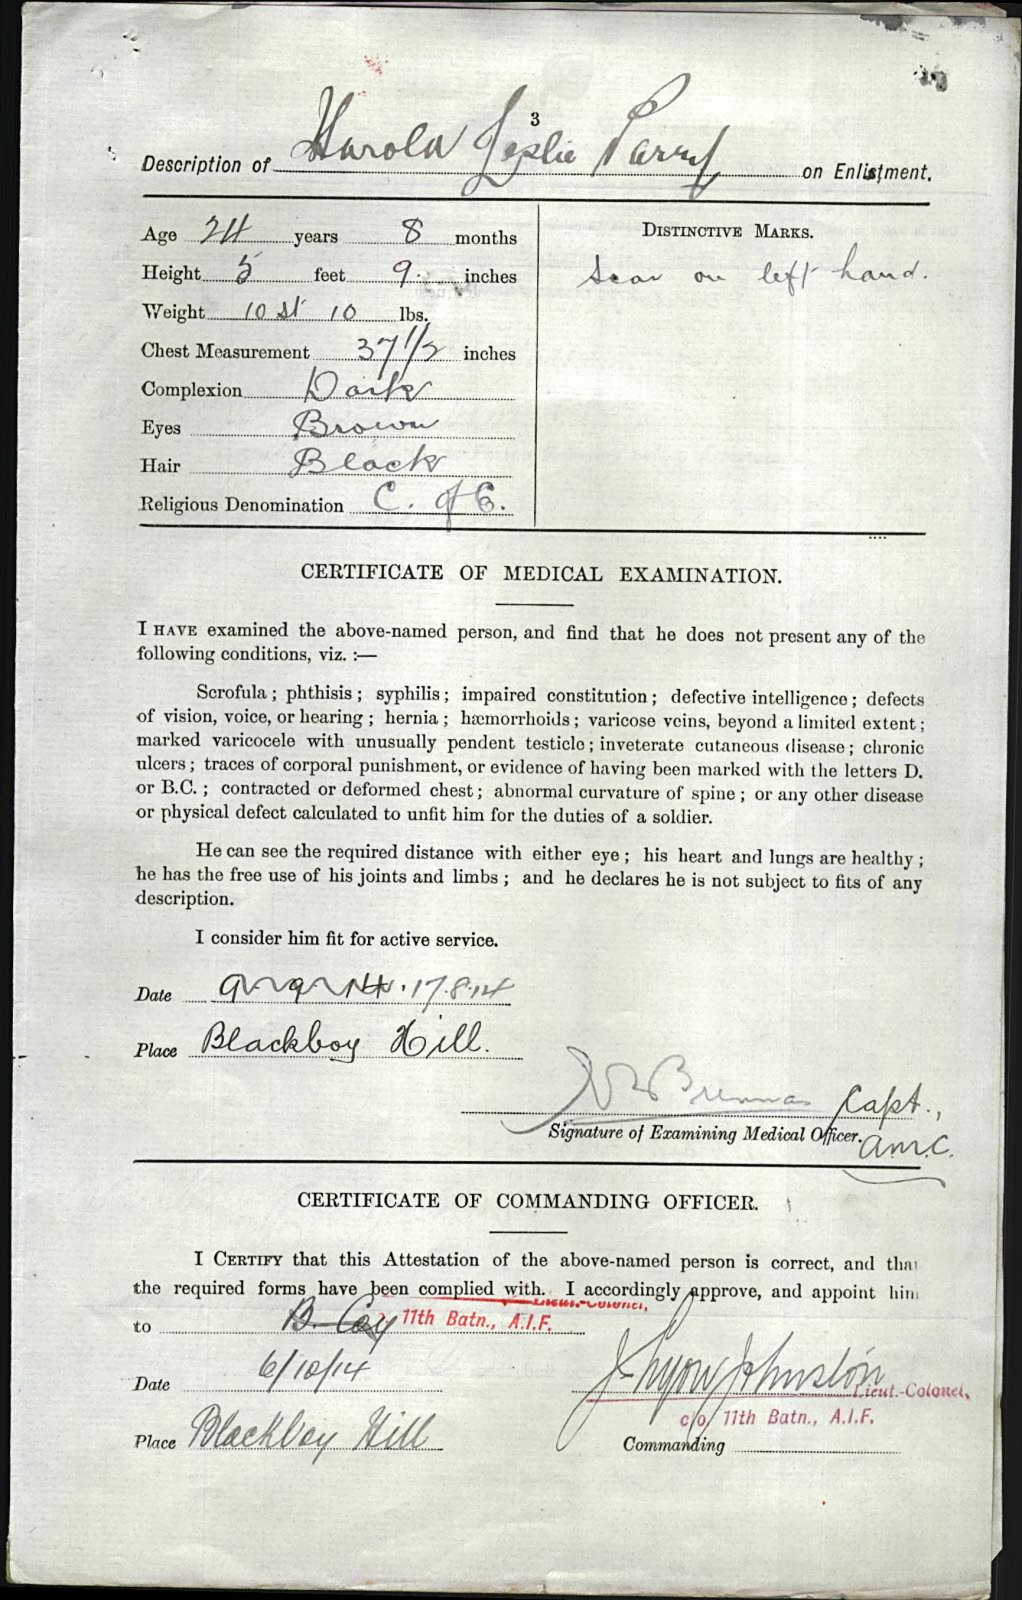 3
Description of Harold Leslie Parry on Enlistment.
Age 24 years 8 months
Height 5 feet 9 inches
Weight 10 st 10 lbs.
Chest Measurement 37 1/2 inches
Complexion Dark
Eyes Brown
Hair Black
Religious Denomination C. of E.
DISTINCTIVE MARKS.
Scar on left hand.
CERTIFICATE OF MEDICAL EXAMINATION.
I HAVE examined the above-named person, and find that he does not present any of the
following conditions, viz. :—
Scrofula ; phthisis ; syphilis ; impaired constitution ; defective intelligence ; defects
of vision, voice, or hearing ; hernia ; hæmorrhoids ; varicose veins, beyond a limited extent ;
marked varicocele with unusually pendent testicle ; inveterate cutaneous disease ; chronic
ulcers ; traces of corporal punishment, or evidence of having been marked with the letters D.
or B.C. ; contracted or deformed chest ; abnormal curvature of spine ; or any other disease
or physical defect calculated to unfit him for the duties of a soldier.
He can see the required distance with either eye ; his heart and lungs are healthy ;
he has the free use of his joints and limbs ; and he declares he is not subject to fits of any
description.
I consider him fit for active service.
Date 17.8.14
Place Blackboy Hill.
Brennan Capt.,
Signature of Examining Medical Officer. A.M.C.
CERTIFICATE OF COMMANDING OFFICER.
I CERTIFY that this Attestation of the above-named person is correct, and that
the required forms have been complied with. I accordingly approve, and appoint him
Lieut.-Colonel,
to B. Coy 11th Batn., A.I.F.
Date 6/10/14
J Lyon Johnston Lieut.-Colonel,
c/o 11th Batn., A.I.F.
Place Blackboy Hill
Commanding